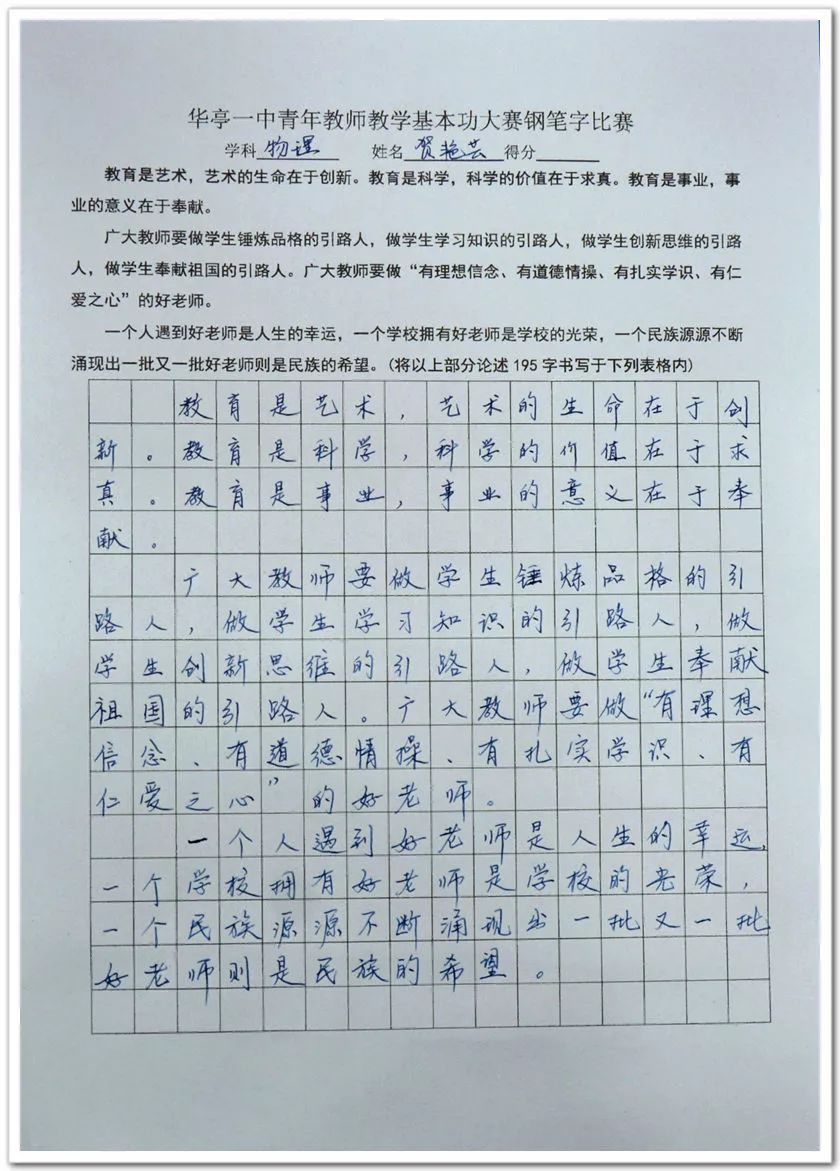 华亭一中青年教师教学基本功大赛钢笔字比赛
学科 物理 姓名 贺艳芸 得分
教育是艺术，艺术的生命在于创新。教育是科学，科学的价值在于求真。教育是事业，事
业的意义在于奉献。
广大教师要做学生锤炼品格的引路人，做学生学习知识的引路人，做学生创新思维的引路
人，做学生奉献祖国的引路人。广大教师要做“有理想信念、有道德情操、有扎实学识、有仁
爱之心”的好老师。
一个人遇到好老师是人生的幸运，一个学校拥有好老师是学校的光荣，一个民族源源不断
涌现出一批又一批好老师则是民族的希望。(将以上部分论述 195 字书写于下列表格内)
教育是艺术，艺术的生命在于创
新。教育是科学，科学的价值在于求
真。教育是事业，事业的意义在于奉
献。
广大教师要做学生锤炼品格的引
路人，做学生学习知识的引路人，做
学生创新思维的引路人，做学生奉献
祖国的引路人。广大教师要做“有理想
信念、有道德情操、有扎实学识、有
仁爱之心”的好老师。
一个人遇到好老师是人生的幸运，
一个学校拥有好老师是学校的光荣，
一个民族源源不断涌现出一批又一批
好老师则是民族的希望。